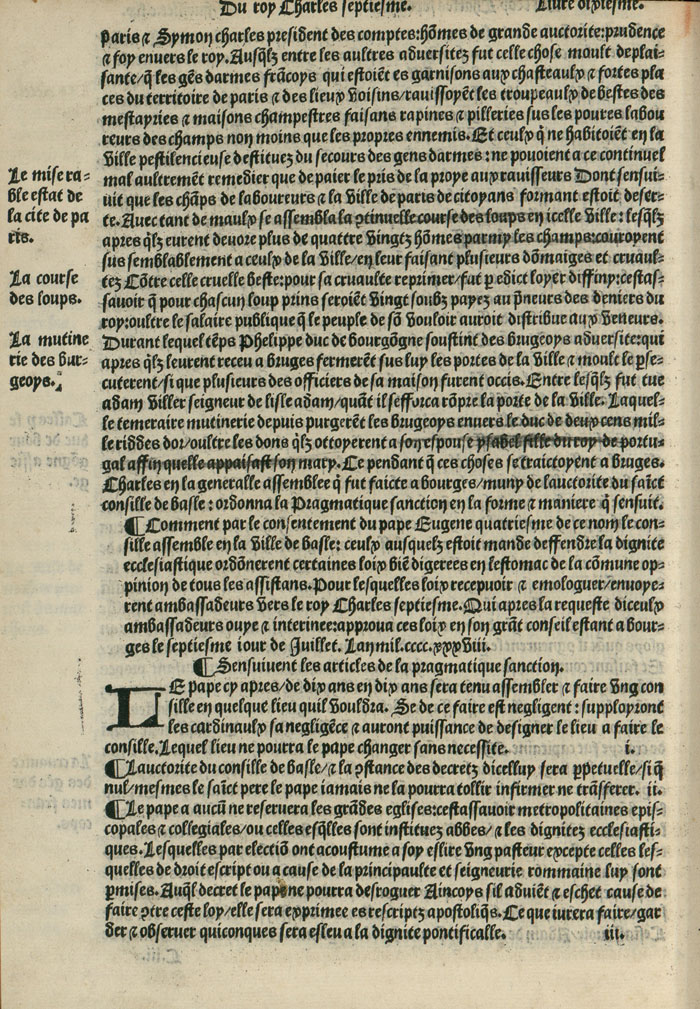 Du roy Charles septiesme. Liure dixiesme.
paris ⁊ Symon charles president des comptes: hōmes de grande auctorite: prudence
⁊ foy enuers le roy. Ausq̄lz entre les aultres aduersitez fut celle chose moult deplai-
sante/ q̄ les gēs darmes frācoys qui estoiēt es garnisons aux chasteaulx ⁊ fortes pla
ces du territoire de paris ⁊ des lieux voisins/ rauissoyēt les troupeaulx de bestes des
mestayries ⁊ maisons champestres faisans rapines ⁊ pilleries sus les poures labou
reurs des champs non moins que les propres ennemis. Et ceulx q̄ ne habitoiēt en la
ville pestilencieuse destituez du secours des gens darmes: ne pouoient a ce continuel
mal aultremēt remedier que de paier le pris de la proye aux rauisseurs Dont sensui-
uit que les chāps de laboureurs ⁊ la ville de paris de citoyans formant estoit deser-
te. Auec tant de maulx se assembla la ꝯtinuelle course des loups en icelle ville: lesq̄lz
apres q̄lz eurent deuore plus de quattre vingtz hōmes parmy les champs: couroyent
sus semblablement a ceulx de la ville/ en leur faisant plusieurs dōmaiges et cruaul-
tez Cōtre celle cruelle beste: pour sa cruaulte reprimer/ fut ꝑ edict loyer diffiny: cestas-
sauoir q̄ pour chascun loup prins seroiēt vingt soubz payez au p̄neurs des deniers du
roy: oultre le salaire publique q̄ le peuple de sō vouloir auroit distribue aux veneurs.
Durant lequel tēps Phelippe duc de bourgōgne soustint des brugeoys aduersite: qui
apres q̄lz leurent receu a bruges fermerēt sus luy les portes de la ville ⁊ moult le ꝑse-
cuterent/ si que plusieurs des officiers de sa maison furent occis. Entre lesq̄lz fut tue
adam viller seigneur de lisle adam/ quāt il sefforca rōpre la porte de la ville. Laquel-
le temeraire mutinerie depuis purgerēt les brugeoys enuers le duc de deux cens mil-
le riddes dor/ oultre les dons q̄lz ottoyerent a son espouse ysabel fille du roy de portu-
gal affin quelle appaisast son mary. Ce pendant q̄ ces choses se traictoyent a bruges.
Charles en la generalle assemblee q̄ fut faicte a bourges/ muny de lauctorite du saīct
consille de basle: ordonna la Pragmatique sanction en la forme ⁊ maniere q̄ sensuit.
¶ Comment par le consentement du pape Eugene quatriesme de ce nom le con-
sille assemble en la ville de basle: ceulx ausquelz estoit mande deffendre la dignite
ecclesiastique ordōnerent certaines loix biē digerees en lestomac de la cōmune op-
pinion de tous les assistans. Pour lesquelles loix recepuoir ⁊ emologuer/ enuoye-
rent ambassadeurs vers le roy Charles septiesme. Qui apres la requeste diceulx
ambassadeurs ouye ⁊ interinee: approuua ces loix en son grāt conseil estant a bour-
ges le septiesme iour de Juillet. Lan mil.cccc.xxxviii.
¶ Sensuiuent les articles de la pragmatique sanction.
LE pape cy apres/ de dix ans en dix ans sera tenu assembler ⁊ faire vng con
sille en quelque lieu quil vouldra. Se de ce faire est negligent: supployront
les cardinaulx sa negligēce ⁊ auront puissance de designer le lieu a faire le
consille. Lequel lieu ne pourra le pape changer sans necessite. i.
¶ Lauctorite du consille de basle/ ⁊ la ꝯstance des decretz dicelluy sera ꝑpetuelle/ si q̄
nul/ mesmes le saīct pere le pape iamais ne la pourra tollir infirmer ne trāsferer. ii.
¶ Le pape a aucū ne reseruera les grādes eglises: cestassauoir metropolitaines epis-
copales ⁊ collegiales/ ou celles esq̄lles sont instituez abbes/ ⁊ les dignitez ecclesiasti-
ques. Lesquelles par electiō ont acoustume a soy eslire vng pasteur excepte celles les-
quelles de droit escript ou a cause de la principaulte et seigneurie rommaine luy sont
ꝑmises. Auq̄l decret le pape ne pourra desroguer Aincoys sil aduiēt ⁊ eschet cause de
faire ꝯtre ceste loy/ elle sera exprimee es rescriptz apostoliq̄s. Ce que iurera faire/ gar
der ⁊ obseruer quiconques sera esleu a la dignite pontificalle. iii.
Le misera-
ble estat de
la cite de pa
ris.
La course
des loups.
La mutine
rie des bur-
geoys.